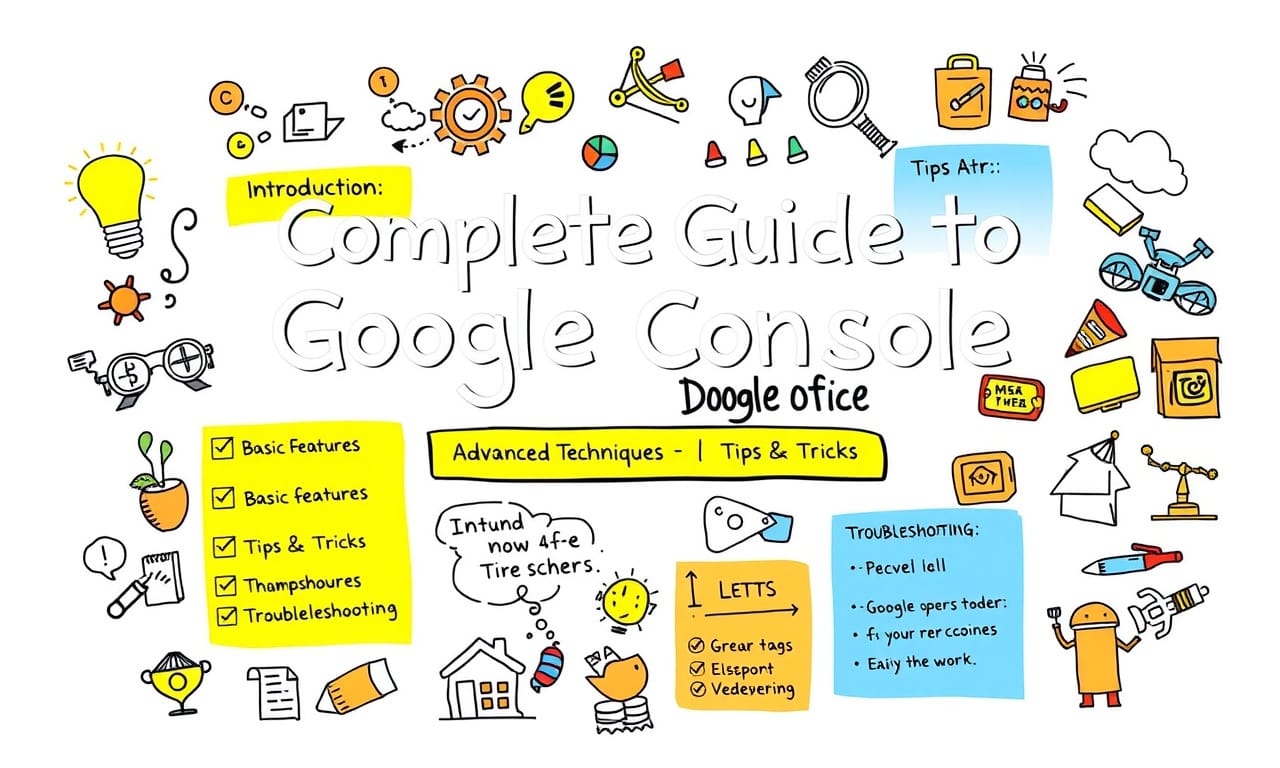 Introduction:
Tips Atr::
Complete Guide to
Google Console
Doogle ofice
Advanced Techniques - | Tips & Tricks
Basic Features
Basic features
Tips & Tricks
Thampshoures
Troubleleshooting
Intund
now 4f-e
Tire schers.
LETTS
Grear tags
Elsεport
Vedevering
TROUBLESHOTTING:
Pecvel lall
Google opers toder:
fı your rer ccoines
Eaily the work.
MSA